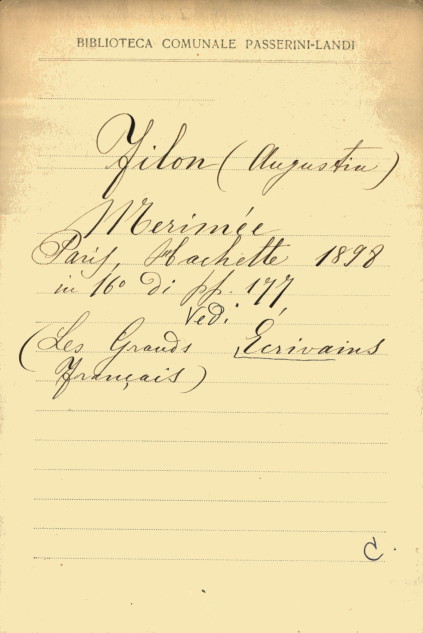 BIBLIOTECA COMUNALE PASSERINI-LANDI
Filon (Augustin)
Merimée
Paris, Hachette 1898
in 16° di pp. 177
Vedi
(Les Grands Écrivains
Français)
C.